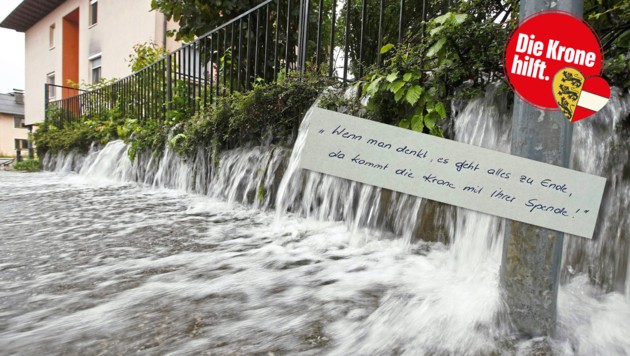 Die Krone
hilft.
„Wenn man denkt, es geht alles zu Ende,
da kommt die Krone mit ihrer Spende!"